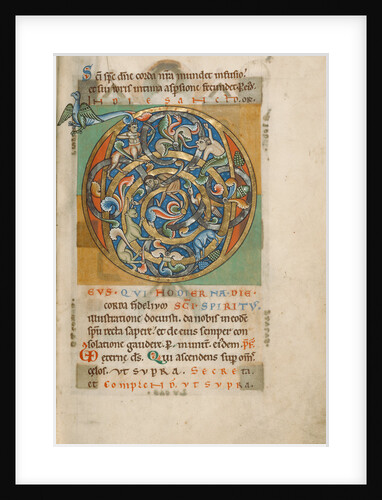 Sc̄i sp̄c dn̄e corda nr̄a mundet infusio.
et sui roris intima aspsione fecundet. P. eid.
IN DIE SANCTO. OR.
EUS. QUI HODIERNA DIE
corda fidelivo SCI SPIRITV
illustratione docuisti. da nobis in eode
spū recta sapere. et de eius semper con
solatione gaudere. P. munr̄t. eiusdem.
eterne ds̄. Qui ascendens sup om̄s
celos. VT SUPRA. SECRETA.
et COMPLEND. VT SUPRA.